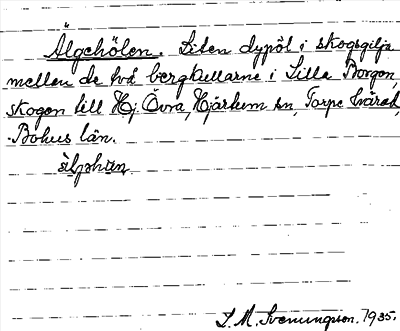 Älgehölen. Liten dypöl i skogsgilja
mellen de två bergkullarne i Lilla Borgon,
skogen till Hj. Övra, Hjärtum sn, Torpe härad,
Bohus län.
L. M. Svenungsson. 1935.